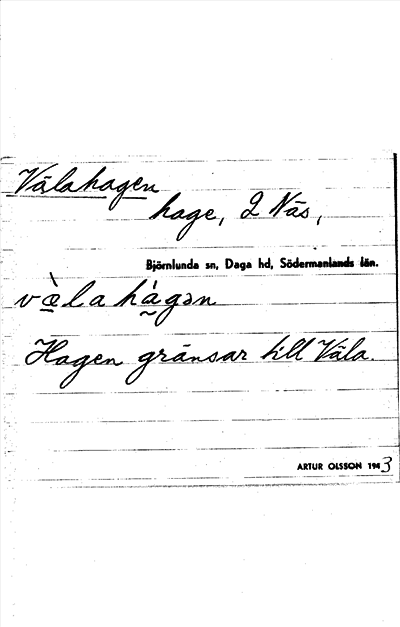 Välahagen
hage, 2 Näs,
Björnlunda sn, Daga hd, Södermanlands län.
væ̀la há̰gən
Hagen gränsar till Väla.
ARTUR OLSSON 1943